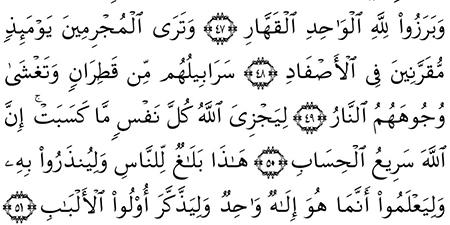 وَبَرَزُوا۟ لِلَّهِ ٱلْوَٰحِدِ ٱلْقَهَّارِ ﴿٤٧﴾ وَتَرَى ٱلْمُجْرِمِينَ يَوْمَئِذٍ
مُّقَرَّنِينَ فِى ٱلْأَصْفَادِ ﴿٤٨﴾ سَرَابِيلُهُم مِّن قَطِرَانٍ وَتَغْشَىٰ
وُجُوهَهُمُ ٱلنَّارُ ﴿٤٩﴾ لِيَجْزِىَ ٱللَّهُ كُلَّ نَفْسٍ مَّا كَسَبَتْ ۚ إِنَّ
ٱللَّهَ سَرِيعُ ٱلْحِسَابِ ﴿٥٠﴾ هَٰذَا بَلَٰغٌ لِّلنَّاسِ وَلِيُنذَرُوا۟ بِهِۦ
وَلِيَعْلَمُوٓا۟ أَنَّمَا هُوَ إِلَٰهٌ وَٰحِدٌ وَلِيَذَّكَّرَ أُو۟لُوا۟ ٱلْأَلْبَٰبِ ﴿٥١﴾